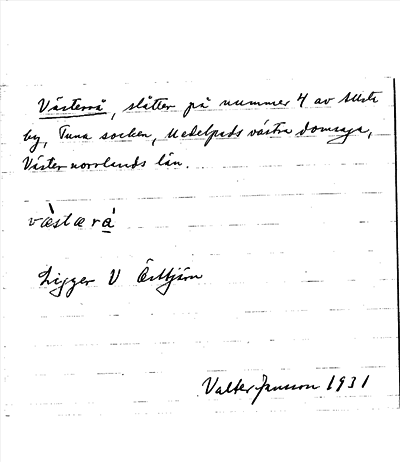 Västerrå, slåtter på nummer 4 av
by, Tuna socken, Medelpads västra domsaga,
Väster norrlands län.
västæra
Ligger V Östtjärn
Valter Jansson 1931